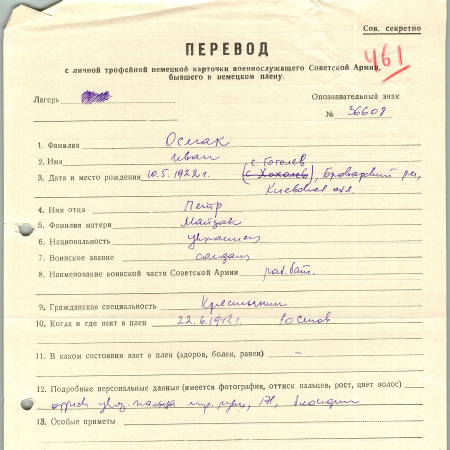 Сов. секретно
461
ПЕРЕВОД
с личной трофейной немецкой карточки военнослужащего Советской Армии,
бывшего в немецком плену.
Лагерь
Опознавательный знак
№ 36608
1. Фамилия Осмак
2. Имя Иван
с. Гоголев
3. Дата и место рождения 10.5.1922г. (с Хохолев), Броварский р-н,
Киевская обл.
4. Имя отца Петр
5. Фамилия матери Майзак
6. Национальность украинец
7. Воинское звание солдат
8. Наименование воинской части Советской Армии раб. бат.
9. Гражданская специальность Крестьянин
10. Когда и где взят в плен 22.6.1942г.
11. В каком состоянии взят в плен (здоров, болен, ранен) –
12. Подробные персональные данные (имеется фотография, оттиск пальцев, рост, цвет волос)
оттиск указ. пальца пр. руки, 171, блондин
13. Особые приметы